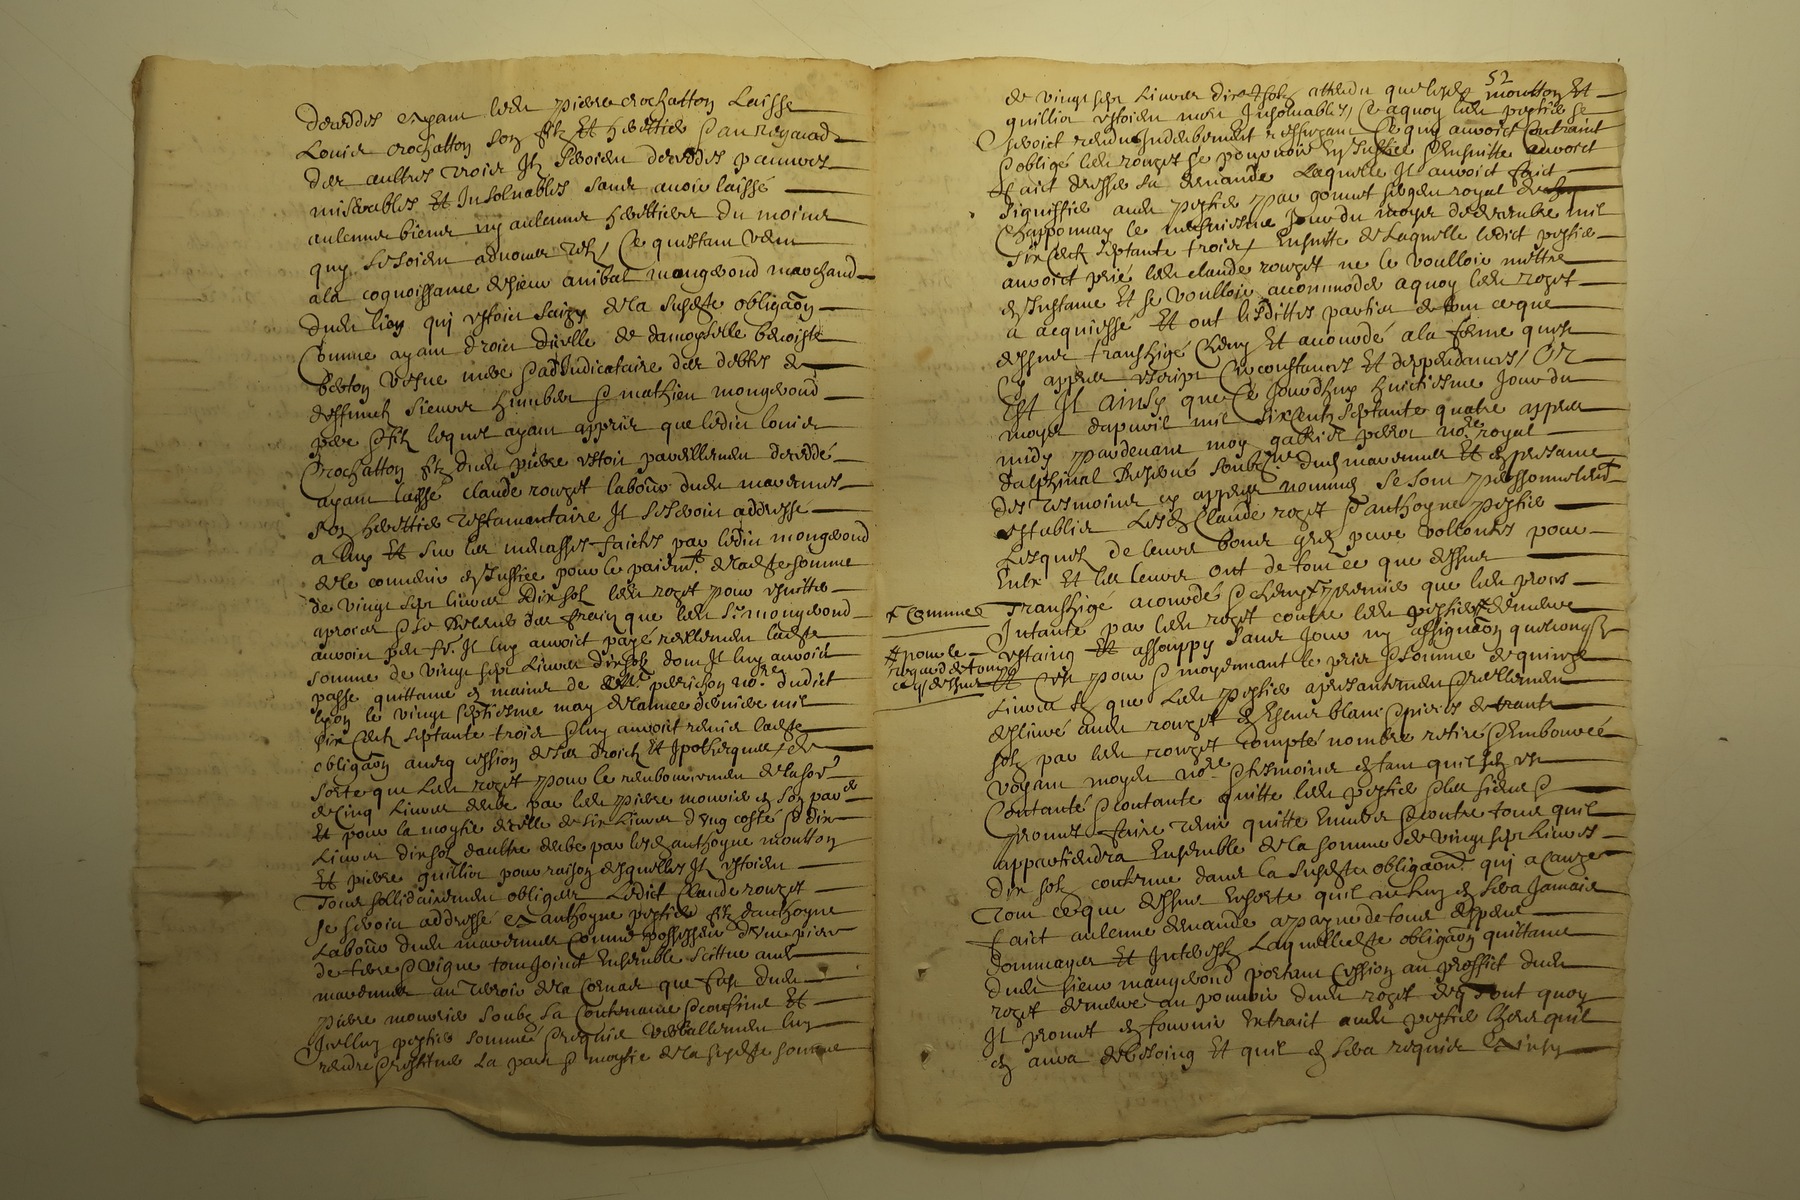 decedes ayant ledit pierre crochatton Laisse
Louis crochatton son filz Et herettier Et au reguard
des aultres trois Ilz seroient decedes pauvres
miserables Et Insolvables sans avoir laissé
aulcuns biens ny aulcuns herettiers du moins
quy soient advoués telz Ce questant venu
a la cognoissance de sieur anibal mongerond marchand
dudit lieu qui estoit saizy de la susditte obligaōn
Comme ayant droict d'icelle de damoyselle benoiste
berton vefve mere Et adjudicataire des debtes de
deffunctz sieurs humbert Et mathieu mongerond
pere Et filz lequel ayant apprins que ledit louis
Crochatton filz dudit pierre estoit pareillement decedé
ayant laissé claude rouget labour dudit marennes
son herettier testamantaire Il se seroit addressé
a luy Et sur les menasses faictes par ledit mongerond
de le convenir en Justice pour le paiemt. de laditte somme
de vingt sept livres dix solz ledit roget pour esvitter
a proces Et se redimer des frais que ledit sr. mongerond
auroit peu fre. Il luy auroit payé reellement laditte
somme de vingt sept Livres dix solz dont Il luy auroit
passe quittance es mains de Me. perrichon nore. dudict
lyon le vingt septiesme may de lannee derniere mil
six centz septante trois Et luy auroit remis laditte
obligaōn avecq cession de ses droictz Et Ipotheques de
sorte que ledit roget pour le remboursement de la some
de cinq Livres deube par ledit pierre mourier en son par
Et pour la moytie dicelle de six Livres d'ung costé Et dix
Livres dix solz daultre deube par lesdz anthoyne moutton
Et pierre quillier pour raison desquelles Ilz estoient
Tous sollidairement obliges Ledict Claude rouget
se seroit addressé a anthoyne pestier filz danthoyne
Labour dudit marennes Comme possesseur d'une piece
de terre Et vigne tout joinct Ensemble scittue audit
marennes au terroir de la Cornaz que fust dudit
pierre mourier soubz sa Contenance Et confins Et
Icelluy pestier sommé Et requis verballement luy
rendre Et restitue La part Et moytie de la susditte somme
52
de vingt sept Livres dix solz attendu que lesdz moutton Et
quillier estoient mort Insolvables, Ce a quoy ledit pestier se
seroit rendu Induebement reffusant Ce quy auroit Contrainct
Et obligé ledit rouget se pourvoir En Justice Et Ensuitte auroit
faict dresser sa demande Laquelle Il auroict faict
signiffier audit pestier par gonnet sergen royal de
Chaponnay le neufviesme Jour du moys de decembre mil
six centz septante trois, Ensuitte de Laquelle ledict pestier
auroict prié ledit claude rouget ne le voulloir mettre
en Instance Et se voulloir accommoder a quoy ledit roget
a acquiessé Et ont lesdittes parties de tout ce que
dessus transhigé Cheny Et accordé a la forme quest
Cy appres escript Circonstances Et deppendances, Or
Est Il ainsy que Ce Jourdhuy huictiesme Jour du
moys dapvril mil six centz septante quatre appres
midy pardevant moy gabriel perrot nore. royal
dalphinal Reservé soubzne. dudit marennes Et en presance
des tesmoins cy appres nommés se sont personnellemt
establis Lesdz Claude roget Et anthoyne pestier
Lesquelz de leurs bons gres pure vollontes pour
Eulx Et les leurs ont de tout ce que dessus
Transhigé acordés Et Cheny + premier que ledit proces
Intanté par ledit roget contre ledit pestier demeure
Estaint Et assouppy sans jour ny assignaōn quelconque
Et ce pour Et moyennant le prix Et somme de quinze
Livres tz que ledit pestier a presantement Et reellement
deslivré audit rouget en Escus blanc Et pieces de trante
solz par ledit rouget compté nombré retiré Et Embourcé
Voyant moydit nore. Et tesmoins en tant quil sen est
Contanté Et contante quitte ledit pestier Et les siens Et
promet faire tenir quitte Envers Et contre tous quil
appartiendra Ensemble de la somme de vingt sept Livres
dix solz contenue dans la susditte obligaōn. qui a Cauze
Tout ce que dessus Ensorte quil ne luy en sera Jamais
faict aulcune demande a peyne de tous despens
dommages Et Interestz Laquelle ditte obligaōn quittance
dudit sieur mongerond portant Cession au proffict dudit
roget demeure au pouvoir dudit roget desquelz ont quoy
Il promet en fournir Extraict audit pestier Chere quil
en aura debesoing Et quil en sera requis Et ainsy
+ Commes
# pour le
regard de tout
ce que dessus